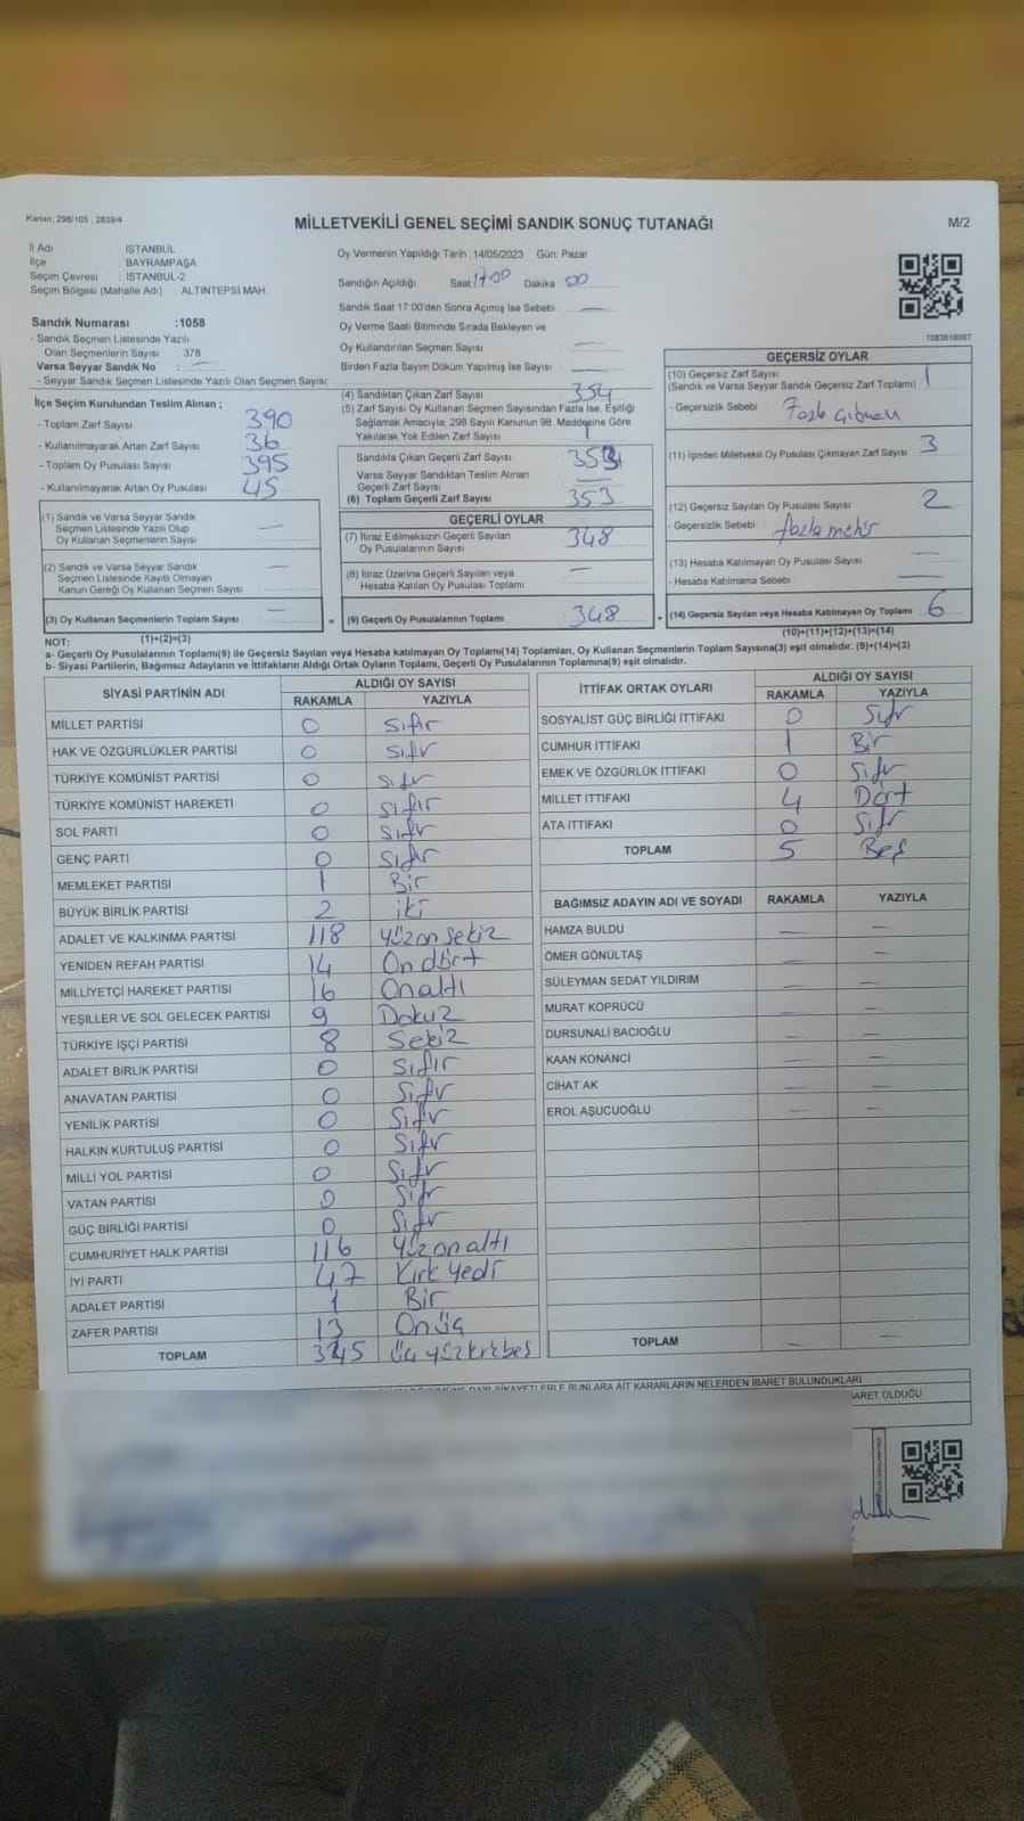 Kanun: 298/105 ; 2839/4
MİLLETVEKİLİ GENEL SEÇİMİ SANDIK SONUÇ TUTANAĞI
M/2
İl Adı İSTANBUL
İlçe BAYRAMPAŞA
Seçim Çevresi : İSTANBUL-2
Seçim Bölgesi (Mahalle Adı) : ALTINTEPSİ MAH.
Sandık Numarası :1058
- Sandık Seçmen Listesinde Yazılı
Olan Seçmenlerin Sayısı 378
Varsa Seyyar Sandık No :
- Seyyar Sandık Seçmen Listesinde Yazılı Olan Seçmen Sayısı:
İlçe Seçim Kurulundan Teslim Alınan ;
- Toplam Zarf Sayısı 390
- Kullanılmayarak Artan Zarf Sayısı 36
- Toplam Oy Pusulası Sayısı 395
- Kullanılmayarak Artan Oy Pusulası 45
(1) Sandık ve Varsa Seyyar Sandık
Seçmen Listesinde Yazılı Olup
Oy Kullanan Seçmenlerin Sayısı —
(2) Sandık ve Varsa Seyyar Sandık
Seçmen Listesinde Kayıtlı Olmayan
Kanun Gereği Oy Kullanan Seçmen Sayısı —
(3) Oy Kullanan Seçmenlerin Toplam Sayısı —
(1)+(2)=(3)
Oy Vermenin Yapıldığı Tarih : 14/05/2023 Gün: Pazar
Sandığın Açıldığı Saat 17:00 Dakika 00
Sandık Saat 17:00'den Sonra Açılmış İse Sebebi —
Oy Verme Saati Bitiminde Sırada Bekleyen ve
Oy Kullandırılan Seçmen Sayısı —
Birden Fazla Sayım Döküm Yapılmış İse Sayısı —
(4) Sandıktan Çıkan Zarf Sayısı 354
(5) Zarf Sayısı Oy Kullanan Seçmen Sayısından Fazla İse, Eşitliği
Sağlamak Amacıyla; 298 Sayılı Kanunun 98. Maddesine Göre
Yakılarak Yok Edilen Zarf Sayısı 1
Sandıkta Çıkan Geçerli Zarf Sayısı 353
Varsa Seyyar Sandıktan Teslim Alınan
Geçerli Zarf Sayısı —
(6) Toplam Geçerli Zarf Sayısı 353
GEÇERLİ OYLAR
(7) İtiraz Edilmeksizin Geçerli Sayılan
Oy Pusulalarının Sayısı 348
(8) İtiraz Üzerine Geçerli Sayılan veya
Hesaba Katılan Oy Pusulası Toplamı —
= (9) Geçerli Oy Pusulalarının Toplamı 348
GEÇERSİZ OYLAR
(10) Geçersiz Zarf Sayısı 1
(Sandık ve Varsa Seyyar Sandık Geçersiz Zarf Toplamı)
- Geçersizlik Sebebi Fazla Çıkması
(11) İçinden Milletvekili Oy Pusulası Çıkmayan Zarf Sayısı 3
(12) Geçersiz Sayılan Oy Pusulası Sayısı 2
- Geçersizlik Sebebi fazla mühür
(13) Hesaba Katılmayan Oy Pusulası Sayısı —
- Hesaba Katılmama Sebebi —
+ (14) Geçersiz Sayılan veya Hesaba Katılmayan Oy Toplamı 6
(10)+(11)+(12)+(13)=(14)
NOT:
a- Geçerli Oy Pusulalarının Toplamı(9) ile Geçersiz Sayılan veya Hesaba katılmayan Oy Toplamı(14) Toplamları, Oy Kullanan Seçmenlerin Toplam Sayısına(3) eşit olmalıdır. (9)+(14)=(3)
b- Siyasi Partilerin, Bağımsız Adayların ve İttifakların Aldığı Ortak Oyların Toplamı, Geçerli Oy Pusulalarının Toplamına(9) eşit olmalıdır.
SİYASİ PARTİNİN ADI ALDIĞI OY SAYISI
RAKAMLA YAZIYLA
MİLLET PARTİSİ 0 Sıfır
HAK VE ÖZGÜRLÜKLER PARTİSİ 0 Sıfır
TÜRKİYE KOMÜNİST PARTİSİ 0 Sıfır
TÜRKİYE KOMÜNİST HAREKETİ 0 Sıfır
SOL PARTİ 0 Sıfır
GENÇ PARTİ 0 Sıfır
MEMLEKET PARTİSİ 1 Bir
BÜYÜK BİRLİK PARTİSİ 2 iki
ADALET VE KALKINMA PARTİSİ 118 Yüzon sekiz
YENİDEN REFAH PARTİSİ 14 On dört
MİLLİYETÇİ HAREKET PARTİSİ 16 Onaltı
YEŞİLLER VE SOL GELECEK PARTİSİ 9 Dokuz
TÜRKİYE İŞÇİ PARTİSİ 8 Sekiz
ADALET BİRLİK PARTİSİ 0 Sıfır
ANAVATAN PARTİSİ 0 Sıfır
YENİLİK PARTİSİ 0 Sıfır
HALKIN KURTULUŞ PARTİSİ 0 Sıfır
MİLLİ YOL PARTİSİ 0 Sıfır
VATAN PARTİSİ 0 Sıfır
GÜÇ BİRLİĞİ PARTİSİ 0 Sıfır
CUMHURİYET HALK PARTİSİ 116 Yüzonaltı
İYİ PARTİ 47 Kırk Yedi
ADALET PARTİSİ 1 Bir
ZAFER PARTİSİ 13 Onüç
TOPLAM 345
İTTİFAK ORTAK OYLARI ALDIĞI OY SAYISI
RAKAMLA YAZIYLA
SOSYALİST GÜÇ BİRLİĞİ İTTİFAKI 0 Sıfır
CUMHUR İTTİFAKI 1 Bir
EMEK VE ÖZGÜRLÜK İTTİFAKI 0 Sıfır
MİLLET İTTİFAKI 4 Dört
ATA İTTİFAKI 0 Sıfır
TOPLAM 5 Beş
BAĞIMSIZ ADAYIN ADI VE SOYADI RAKAMLA YAZIYLA
HAMZA BULDU — —
ÖMER GÖNÜLTAŞ — —
SÜLEYMAN SEDAT YILDIRIM — —
MURAT KÖPRÜCÜ — —
DURSUNALİ BACIOĞLU — —
KAAN KONANCİ — —
CİHAT AK — —
EROL AŞUCUOĞLU — —
TOPLAM — —
ŞİKAYETLERLE BUNLARA AİT KARARLARIN NELERDEN İBARET BULUNDUKLARI
İBARET OLDUĞU